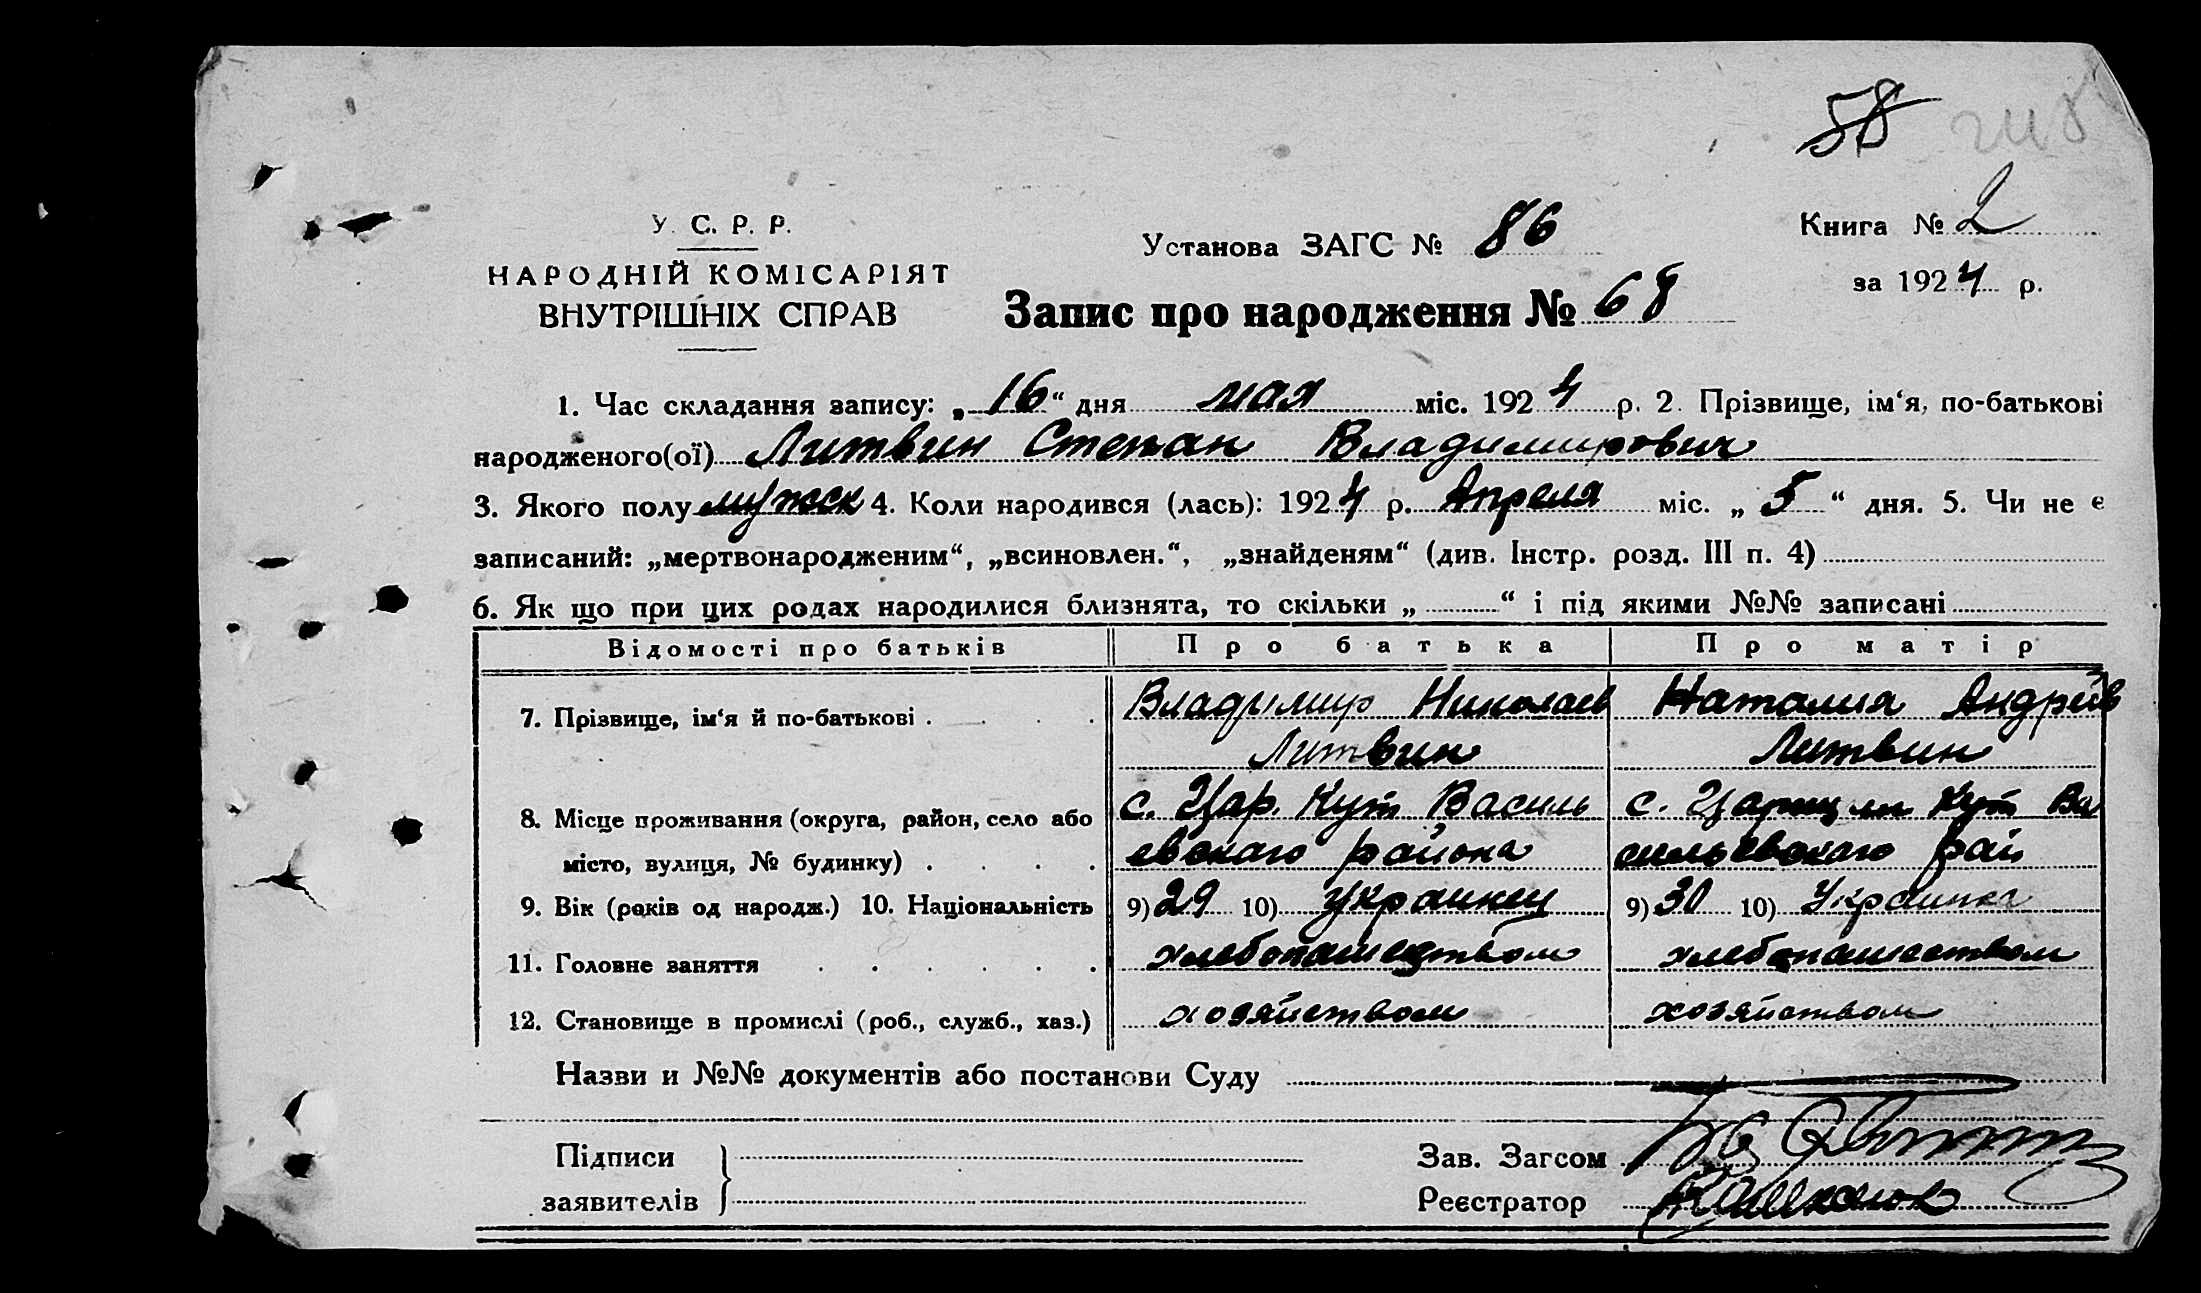 58
У. С. Р. Р.
НАРОДНІЙ КОМІСАРІЯТ
ВНУТРІШНІХ СПРАВ
Установа ЗАГС № 86
Книга № 2
за 1924 р.
Запис про народження № 68
1. Час складання запису: „16“ дня мая міс. 1924 р. 2. Прізвище, ім‘я, по-батькові
народженого(ої) Литвин Степан Владимирович
3. Якого полу мужск 4. Коли народився (лась): 1924 р. Апреля міс. „ 5 “ дня. 5. Чи не є
записаний: „мертвонародженим“, „всиновлен.“, „знайденям“ (див. Інстр. розд. III п. 4)
6. Як що при цих родах народилися близнята, то скільки „ “ і під якими №№ записані
Відомості про батьків Про батька Про матір
7. Прізвище, ім‘я й по-батькові . . . . Владимир Николаев Наталия Андреев
Литвин Литвин
8. Місце проживання (округа, район, село або с. Цар. Кут Василь с. Царицын Кут Ва
місто, вулиця, № будинку) . . . . евскаго района сильевскаго рай
9. Вік (років од народж.) 10. Національність 9) 29 10) Украинец 9) 30 10) Украинка
11. Головне заняття . . . . . . хлебопашеством хлебопашеством
12. Становище в промислі (роб., служб., хаз.) хозяйством хозяйством
Назви и №№ документів або постанови Суду
Підписи
заявителів
Зав. Загсом
Реєстратор